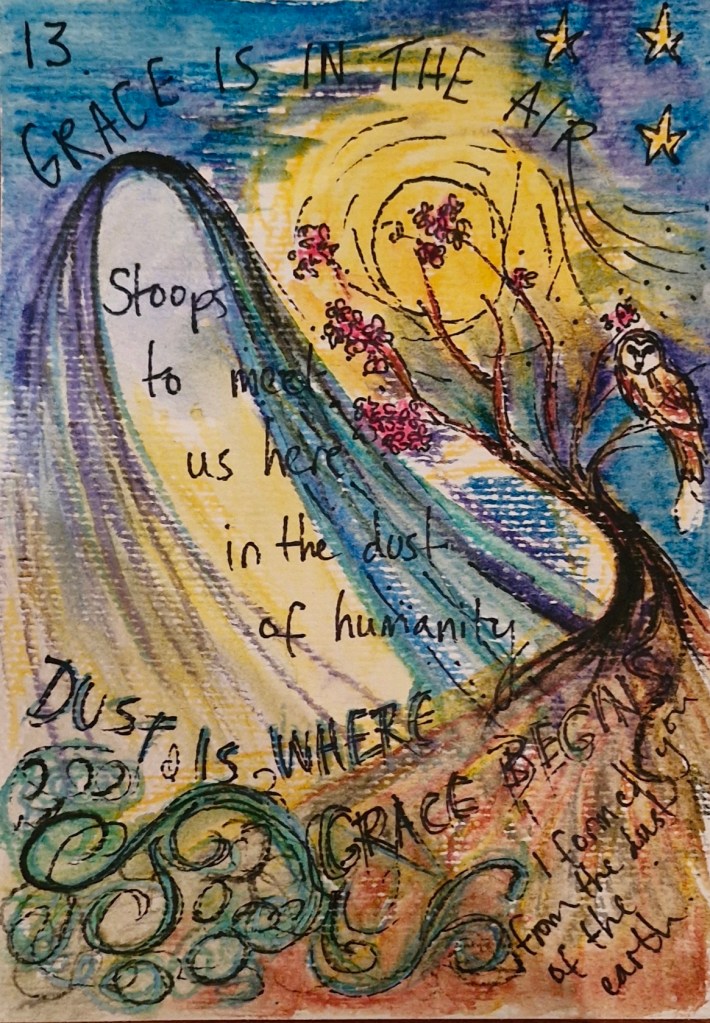 13.
GRACE IS IN THE AIR
Stoops
to meet
us here
in the dust
of humanity
DUST IS WHERE
GRACE BEGINS
I formed you
from the dust
of the
earth.